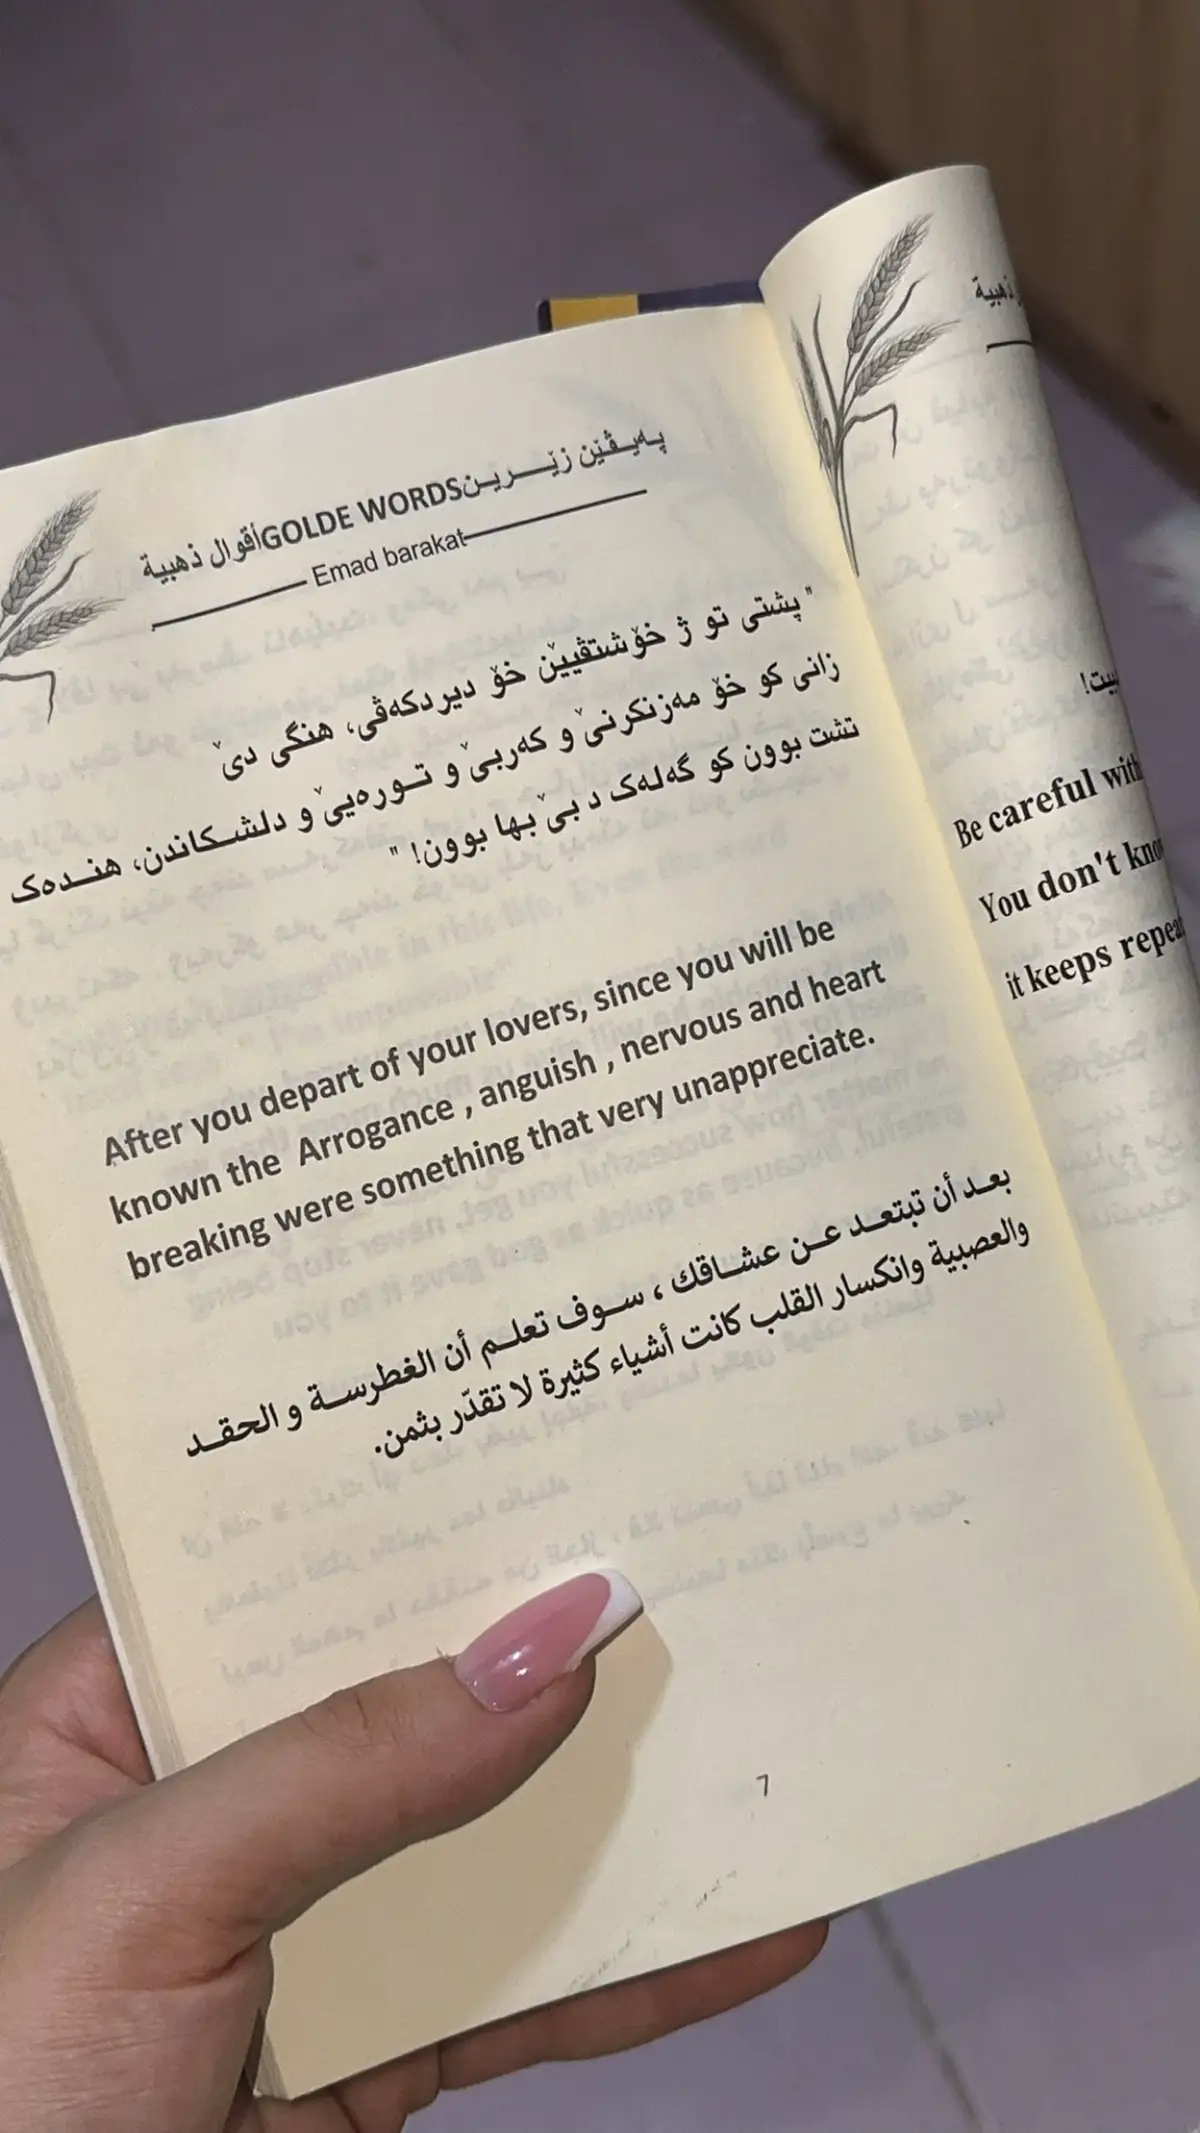 پەیڤێن زێـــریـنGOLDE WORDSأقوال ذهبية
Emad barakat
" پشتی تو ژ خۆشتڤیێن خۆ دیردکەڤی، هنگی دێ
زانی کو خۆ مەزنکرنێ و کەربێ و تـورەیێ و دلشـکاندن، هنـدەک
تشت بوون کو گەلەک د بێ بها بوون! "
After you depart of your lovers, since you will be
known the Arrogance , anguish , nervous and heart
breaking were something that very unappreciate.
بعـد أن تبتعـد عـن عشـاقك ، سـوف تعلـم أن الغطرسـة و الحقـد
والعصبية وانكسار القلب كانت أشياء كثيرة لا تقدّر بثمن.
7
ذهبية
Be careful with
You don't
it keeps